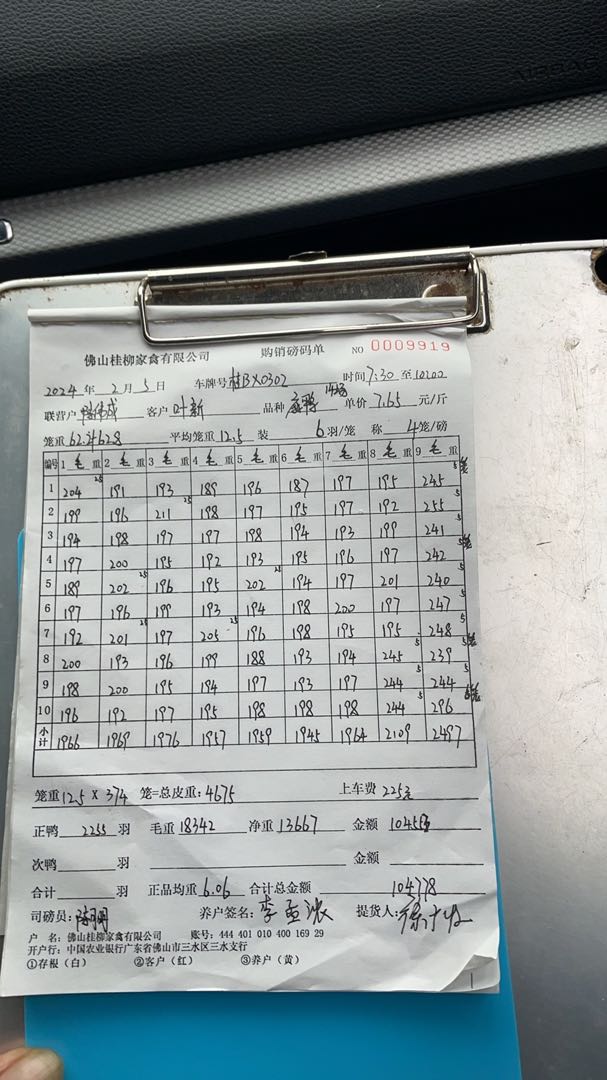 AIRBAG
佛山桂柳家禽有限公司 购销磅码单 NO 0009919
2024年 2月 5日 车牌号 桂BX0302 时间 7:30 至 10:00
联营户 客户 叶新 品种 单价 7.65 元/斤
笼重 62斤628 平均笼重 12.5 装 6 羽/笼 称 4 笼/磅
编号 1 毛 重 2 毛 重 3 毛 重 4 毛 重 5 毛 重 6 毛 重 7 毛 重 8 毛 重 9 毛 重
1 204 191 193 189 196 187 197 195 245
2 199 196 211 198 197 195 197 192 255
3 194 198 197 197 198 194 193 199 241
4 197 200 195 192 193 195 196 197 242
5 189 202 196 195 202 194 197 201 240
6 197 196 199 193 194 198 200 197 247
7 192 201 197 205 196 198 195 195 248
8 200 193 196 199 188 193 194 245 239
9 198 200 195 194 197 193 197 244 244
10 196 192 197 195 198 198 198 244 296
小计 1966 1969 1976 1957 1959 1945 1964 2109 2497
笼重 12.5 X 374 笼=总皮重: 4675 上车费 225元
正鸭 2255 羽 毛重 18342 净重 13667 金额
次鸭 羽 金额
合计 羽 正品均重 6.06 合计总金额 104778
司磅员: 养户签名: 提货人:
户 名: 佛山桂柳家禽有限公司 账号: 444 401 010 400 169 29
开户行: 中国农业银行广东省佛山市三水区三水支行
①存根（白） ②客户（红） ③养户（黄）